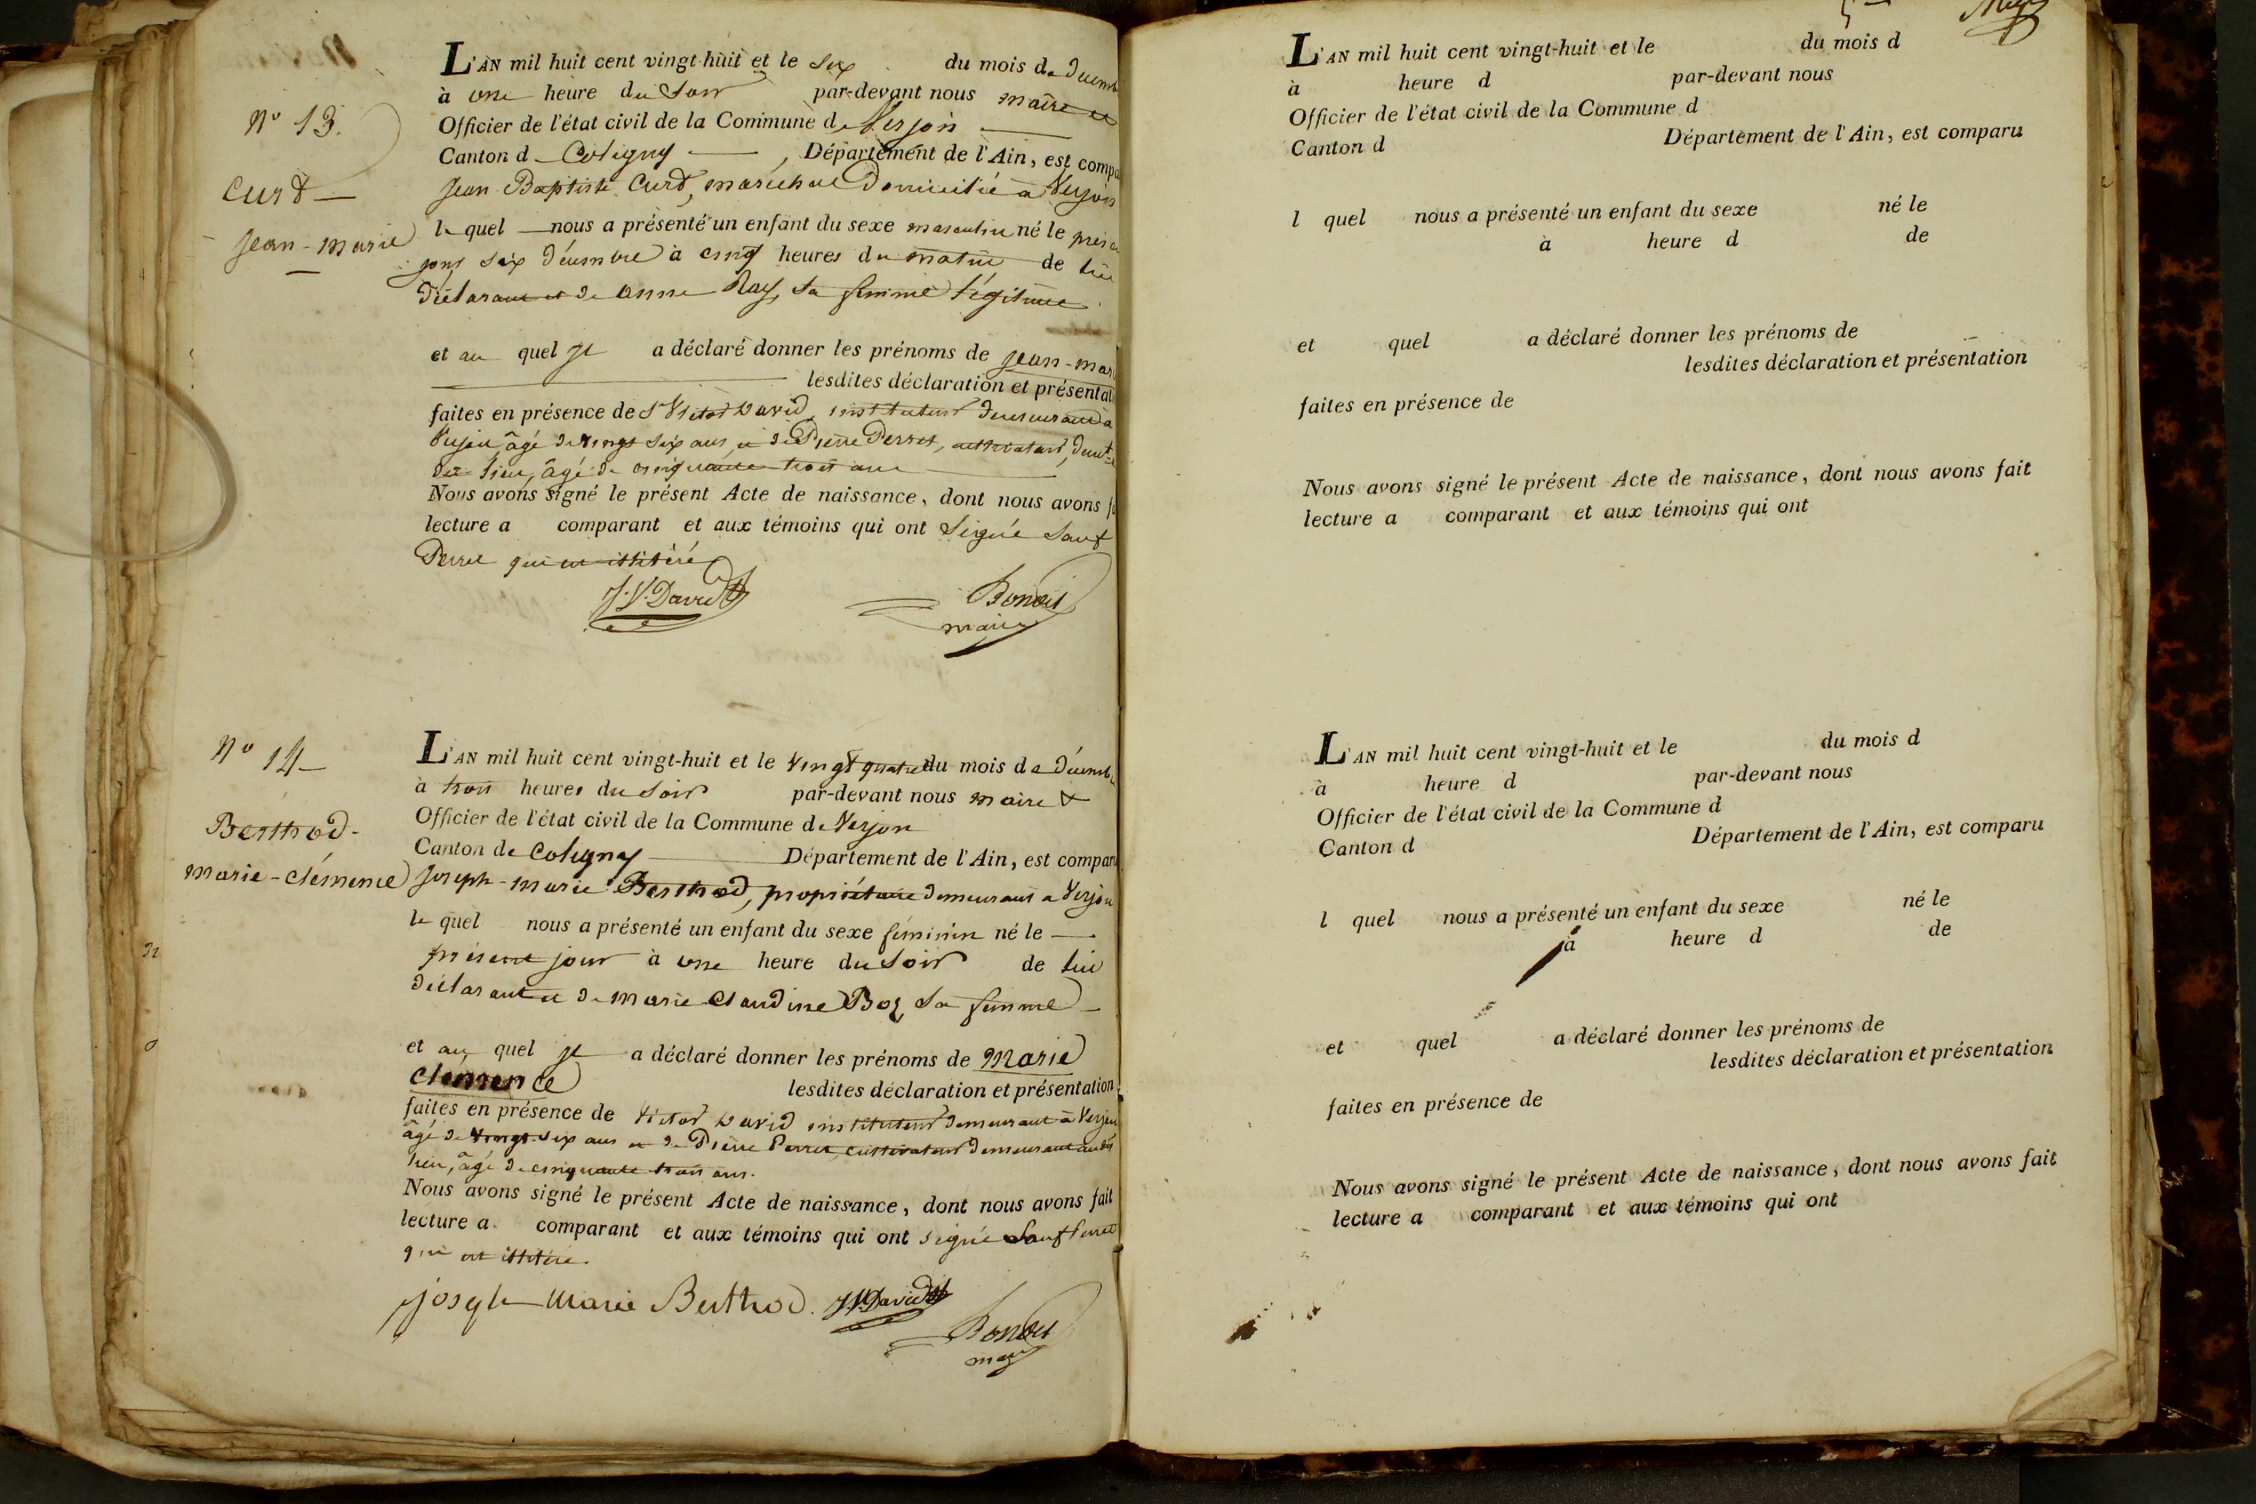 L'AN mil huit cent vingt-huit et le six du mois de décemb
à une heure du soir par-devant nous maire et
N° 13.
Officier de l'état civil de la Commune de Verjon
Canton d Coligny, Département de l'Ain, est compa
Curt
Jean Baptiste Curt, maréchal Domicilié à Verjon
Jean-Marie
le quel nous a présenté un enfant du sexe masculin né le prés
jour six décembre à cinq heures du matin de lui
déclarant et de Anne Ray, sa femme légitime
et au quel il a déclaré donner les prénoms de Jean-Mar
lesdites déclaration et présentat
faites en présence de Sr Victor David, instituteur demeurant à
Verjon âgé de vingt six ans, et de Pierre Perret, cultivateur, demt
dit lieu, âgé de cinquante trois ans
Nous avons signé le présent Acte de naissance, dont nous avons f
lecture a comparant et aux témoins qui ont signé sauf
Perret qui est illitéré
J. V. David
Bonoit
maire
N° 14
L'AN mil huit cent vingt-huit et le vingt quatre du mois de décemb
à trois heures du soir par-devant nous maire &
Officier de l'état civil de la Commune de Verjon
Berthod
Canton de Coligny Département de l'Ain, est comparu
Marie-Clémence
Joseph-Marie Berthod, propriétaire demeurant à Verjon
le quel nous a présenté un enfant du sexe féminin né le
présent jour à une heure du soir de lui
déclarant et de Marie Claudine Boz, sa femme
et au quel il a déclaré donner les prénoms de Marie
Clémence lesdites déclaration et présentation
faites en présence de Victor David instituteur demeurant à Verjon
âgé de vingt-six ans et de Pierre Perret, cultivateur demeurant audit
lieu, âgé de cinquante trois ans.
Nous avons signé le présent Acte de naissance, dont nous avons fait
lecture a comparant et aux témoins qui ont signé sauf Perret
qui est illitéré.
Joseph Marie Berthod. J. V. David
Bonoit
maire
L'AN mil huit cent vingt-huit et le du mois d
à heure d par-devant nous
Officier de l'état civil de la Commune d
Canton d Département de l'Ain, est comparu
l quel nous a présenté un enfant du sexe né le
à heure d de
et quel a déclaré donner les prénoms de
lesdites déclaration et présentation
faites en présence de
Nous avons signé le présent Acte de naissance, dont nous avons fait
lecture a comparant et aux témoins qui ont
L'AN mil huit cent vingt-huit et le du mois d
à heure d par-devant nous
Officier de l'état civil de la Commune d
Canton d Département de l'Ain, est comparu
l quel nous a présenté un enfant du sexe né le
à heure d de
et quel a déclaré donner les prénoms de
lesdites déclaration et présentation
faites en présence de
Nous avons signé le présent Acte de naissance, dont nous avons fait
lecture a comparant et aux témoins qui ont